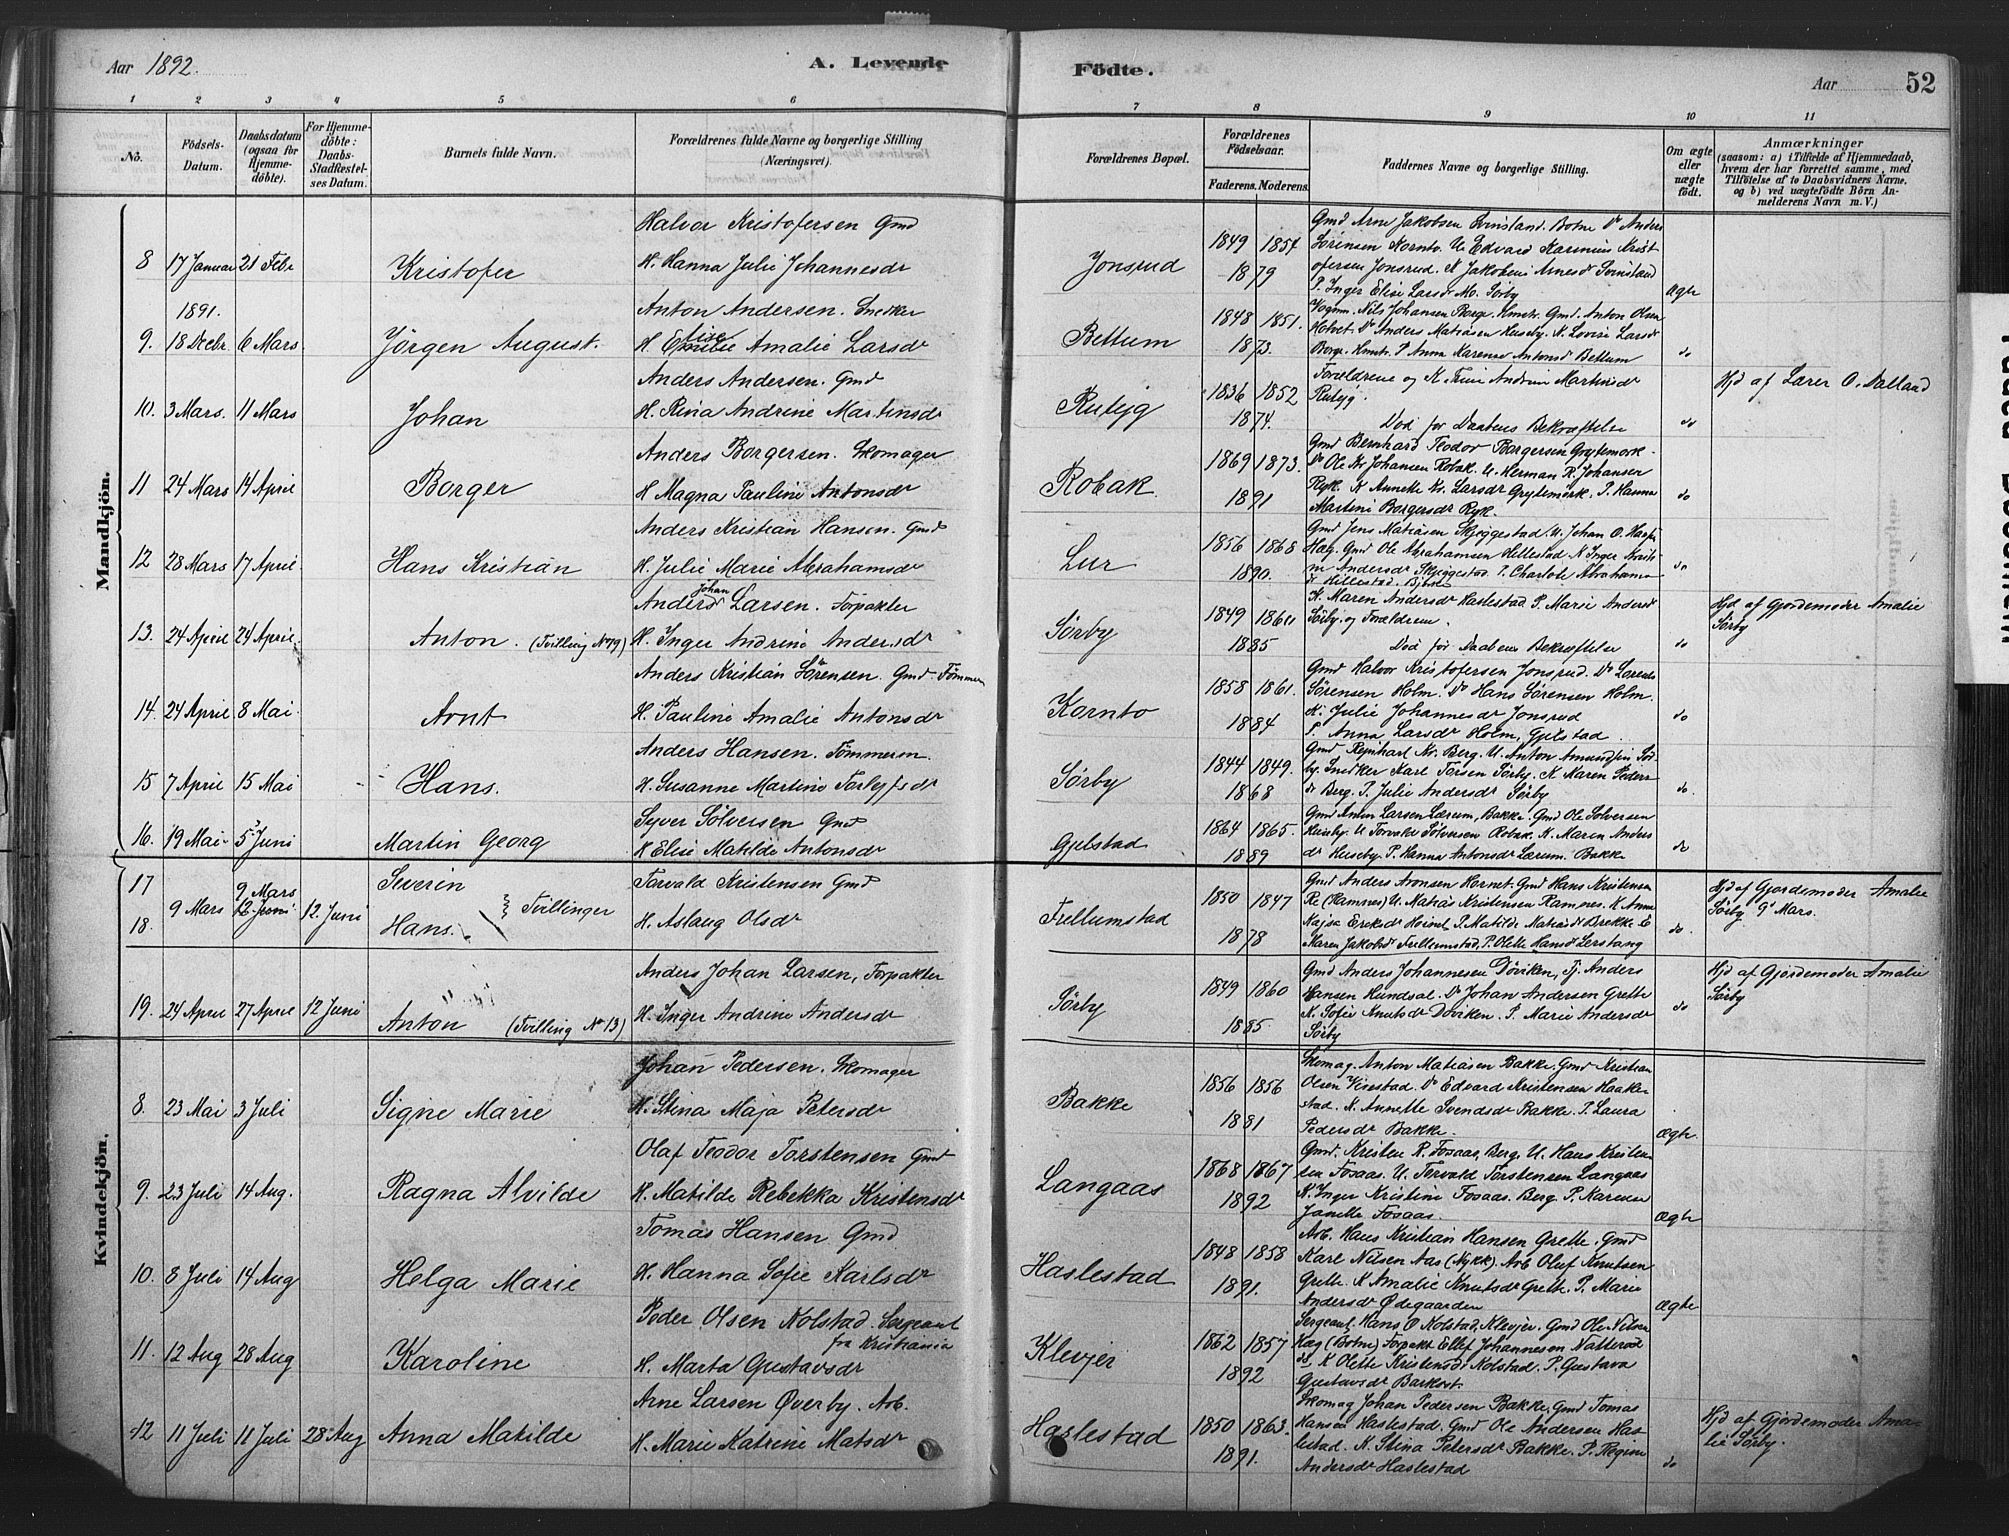 Aar 1892.
A. Levende Födte.
Aar 52
1 2 3 4 5 6 7 8 9 10 11
No.
Födsels-Datum.
Daabsdatum (ogsaa for Hjemme-döbte).
For Hjemme-döbte: Daabs-Stadfæstel-ses Datum.
Barnets fulde Navn.
Forældrenes fulde Navne og borgerlige Stilling (Næringsvei).
Forældrenes Bopæl.
Forældrenes Födselsaar.
Faderens. Moderens.
Faddernes Navne og borgerlige Stilling.
Om ægte eller uægte födt.
Anmærkninger
(saasom: a) i Tilfælde af Hjemmedaab, hvem der har forrettet samme, med Tilföielse af to Daabsvidners Navne, og b) ved uægtefödte Börn An-melderens Navn m. V.)
Mandkjön.
8 17 Januar 21 Febr Kristofer
Halvor Kristofersen Gmd
H. Hanna Julie Johannesdr
Jonsrud
1849 1854
1879
Gmd Arne Jakobsen Svinsland. Botne Do Anders
Sörensen Kornto. U. Edvard Rasmus Krist
ofersen Jonsrud. K Jakobine Arnesdr Svinsland
P. Inger Elise Larsdr M. Sørby
Ægte
1891.
9. 18 Decbr. 6 Mars. Jørgen August.
Anton Andersen. Snedker
H. Elise Amalie Larsdr
Bettum
1848 1851.
1873.
Vognm. Nils Johansen Borge. Hmstr. Gmd. Anton Olsen
Holvet. Do Anders Matiasen Huseby. K. Lovise Larsdr
Borge. Hmstr. P Anna Karense Antonsdr Bettum
do
10. 3 Mars. 11 Mars Johan
Anders Andersen. Gmd
H. Rina Andrine Martinsdr
Rutyg
1836 1852
1874.
Forældrene og K Trine Andrine Martinsdr
Rutyg.
Død før Daabens Bekræftelse
do
Hjd af Lærer O. Dalland
11 24 Mars 14 April Borger
Anders Borgersen. Skomager
H Magna Pauline Antonsdr
Robak
1869 1873.
1891
Gmd Bernhard Teodor Borgersen Grytemørk.
Do Ole Kr Johansen Robak. U. Herman R. Johansen
Ryk. K Annette Kr. Larsdr Grytemørk. P. Hanna
Martine Borgersdr Ryk.
do
12 28 Mars 17 April Hans Kristian
Anders Kristian Hansen. Gmd
H. Julie Marie Abrahamsdr
Lur
1856 1868
1890.
Gmd Jens Matiasen Skjeggestad. U. Johan O.
Hæg. Gmd Ole Abrahamsen Hillestad. K Inger Kristi
ne Andersdr Skjeggestad. P. Charlote Abrahams
dr Hillestad.
do
13. 24 April 24 April. Anton. (Tvilling No 19)
Anders Johan Larsen. Forpakter
H. Inger Andrine Andersdr
Sørby
1849 1860
1885
K. Maren Andersdr Haslestad. P. Marie Andersdr
Sørby. og Forældrene.
Død før Daabens Bekræftelse
do
Hjd af Gjordemoder Amalie
Sørby
14. 24 April 8 Mai. Arnt
Anders Kristian Sörensen. Gmd. Tömmerm
H. Pauline Amalie Antonsdr
Kornto
1858 1861.
1884
Gmd Halvor Kristofersen Jonsrud. Do Lorents
Sörensen Holm. Do Hans Sörensen Holm.
K. Julie Johannesdr Jonsrud
P. Anna Larsdr Holm, Gjelstad.
do
15 7 April 15 Mai Hans.
Anders Hansen. Tömmerm.
H. Susanne Martine Torbjs dr
Sørby
1844 1849.
1868
Gmd Reinhart Kr. Berg. U. Anton Amundsen Sør
by. Snedker Karl Torsen Sørby. K Maren Peders
dr Berg. P. Julie Andersdr Sørby
do.
16. 19 Mai 5 Juni Martin Georg
Syver Sölversen Gmd
H Elise Matilde Antonsdr
Gjelstad
1864 1865.
1889
Gmd Anton Larsen Lærum, Bakke. Gmd Ole Solversen
Huseby. U Torvald Sölversen Robak. K. Maren Anders
dr Huseby. P. Hanna Antonsdr Lærum. Bakke
do
17 Severin
18. Hans. } Tvillinger
9 Mars 9 Mars 12 Juni 12 Juni
Torvald Kristensen Gmd
H. Aslaug Olsdr
Frellumstad
1850 1847
1878
Gmd Anders Aronsen Hornet. Gmd Hans Kristensen
Re (Ramnes) U. Matias Kristensen Ramnes. K Anna
Kajsa Eriksdr Hornet P. Matilde Matiasdr Brekke E
Maren Jakobsdr Frellumstad. P. Olette Hansdr Lerstang
do.
Hjd af Gjordemoder Amalie
Sørby 9 Mars.
19. 24 April 27 April 12 Juni Anton (Tvilling No 13)
Anders Johan Larsen, Forpakter
H. Inger Andrine Andersdr
Sørby
1849 1860
1885
Gmd Anders Johannesen Døviken, Tj. Anders
Hansen Hundsal. Do Johan Andersen Grette
K. Sofie Knutsdr Døviken. P. Marie Andersdr
Sørby
do
Hjd af Gjordemoder Amalie
Sørby
Kvindekjön.
8. 23 Mai 3 Juli Signe Marie
Johan Pedersen. Skomager
H. Stina Maja Petersdr
Bakke
1856 1856
1881
Skomag. Anton Matiasen Bakke. Gmd Kristian
Olsen Virestad. Do Edvard Kristensen Haake
stad. K. Annette Svendsdr Bakke. P. Laura
Pedersdr Bakke.
Ægte
9. 23 Juli 14 Aug. Ragna Alvilde
Olaf Teodor Torstensen Gmd
H. Matilde Rebekka Kristensdr
Langaas
1868 1867
1892
Gmd. Kristen R. Fosaas, Berg. U. Hans Kristen
sen Fosaas. U. Torvald Torstensen Langaas
K. Inger Kristine Fosaas. Berg. P. Karen
Janette Fosaas.
Ægte
10. 8 Juli 14 Aug Helga Marie
Tomas Hansen Gmd
H. Hanna Sofie Karlsdr
Haslestad
1848 1858
1891.
Arb. Hans Kristian Hansen Grette. Gmd
Karl Nilsen Aas (Nykk). Arb Oluf Knutsen
Grette. K Amalie Knutsdr Grette. P. Marie
Andersdr Ødegaarden
Ægte
11. 12 Aug 28 Aug Karoline
Peder Olsen Nolstad. Sergeant
fra Kristiania
H. Marta Gustavsdr
Klevjer
1862 1857
1892
Sergeant. Hans O Nolstad, Klevjer. Gmd Ole Nilsen
Hag (Botne) Forpakt Ellef Johannesen Natterød
K Olette Kristensdr Nolstad. P. Gustava
Gustavsdr Barkost.
12 11 Juli 11 Juli 28 Aug Anna Matilde
Arne Larsen Øverby. Arb.
H. Marie Katrine Matsdr
Haslestad
1850 1863.
1891.
Skomag Johan Pedersen Bakke. Gmd Tomas
Hansen Haslestad. Gmd Ole Andersen Has
lestad. K. Stina Petersdr Bakke. P. Regine
Andersdr Haslestad
do
Hjd af Gjordemoder Ama-
lie Sørby.